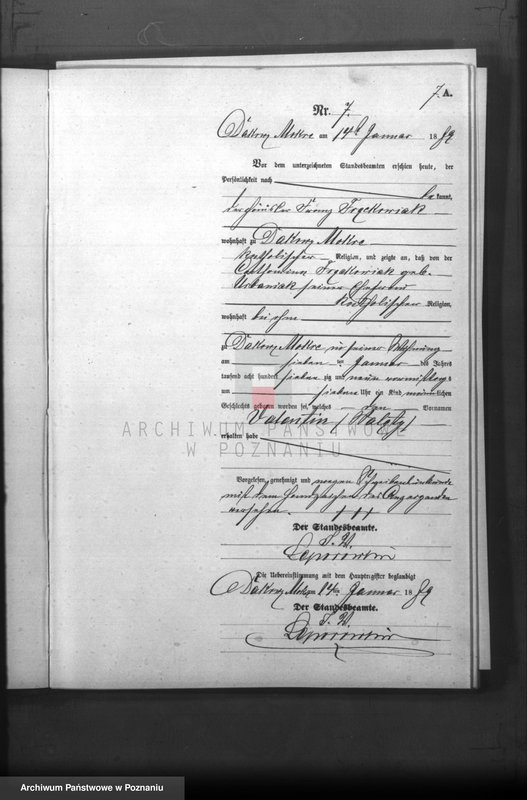 7. A.
Nr. 7.
Dakowy Mokre am 14ten Januar 1889
Vor dem unterzeichneten Standesbeamten erschien heute, der
Persönlichkeit nach
bekannt,
der Häusler Franz Frąckowiak
wohnhaft zu Dakowy Mokre
katholischer Religion, und zeigte an, daß von der
Frąckowiak geb.
Urbaniak seiner Ehefrau
katholischer Religion,
wohnhaft bei ihm
zu Dakowy Mokre in seiner Wohnung
am sieben ten Januar des Jahres
tausend acht hundert zig und neun vormittags
um sieben Uhr ein Kind männlichen
Geschlechts geboren worden sei, welches den Vornamen
Valentin (Walęty)
erhalten habe
ARCHIWUM PAŃSTWOWE
W POZNANIU
Vorgelesen, genehmigt und wegen Schreibensunkunde
mit dem Handzeichen des Anzeigenden
versehen. +++
Der Standesbeamte.
J. V.
Die Uebereinstimmung mit dem Hauptregister beglaubigt
Dakowy Mokre am 14ten Januar 1889
Der Standesbeamte.
J. V.
Archiwum Państwowe w Poznaniu